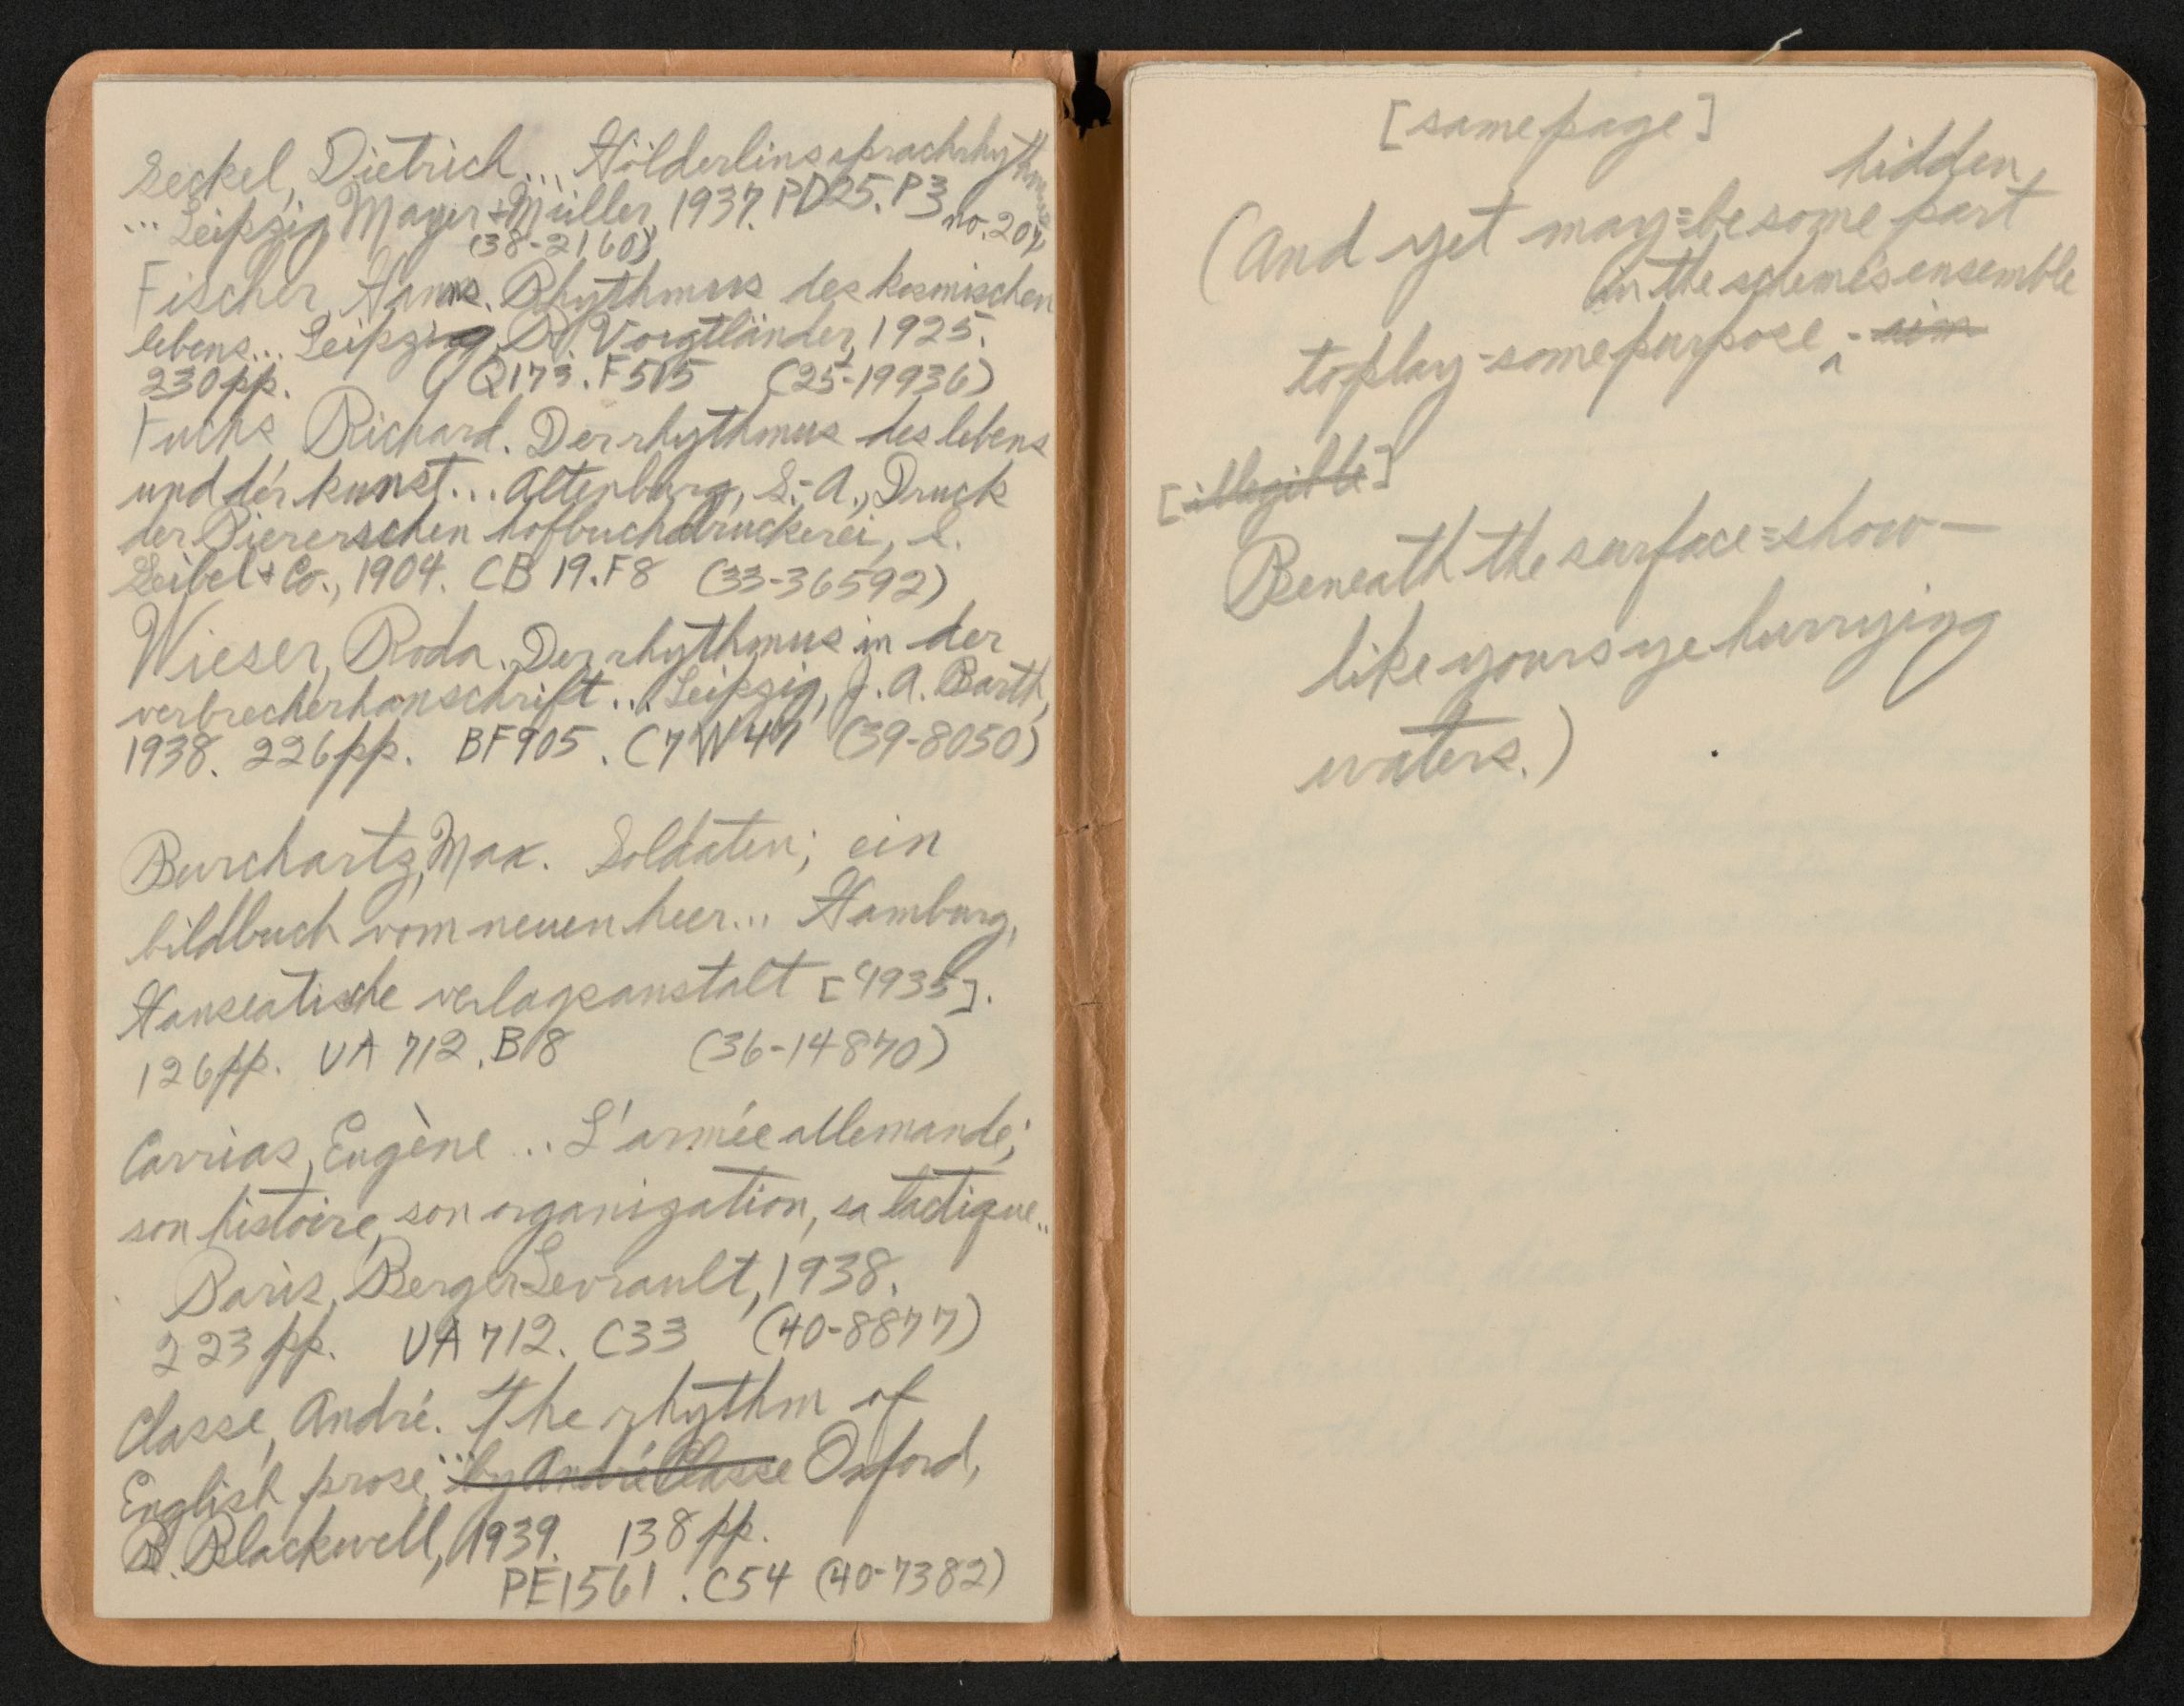 Seckel, Dietrich... Hölderlins sprachrhythmus
... Leipzig, Mayer + Müller, 1937. PD25.P3
(38-2160) no. 207
Fischer, Hanns. Rhythmus des kosmischen
lebens... Leipzig, R. Voigtländer, 1925.
230 pp. Q173.F515 (25-19936)
Fuchs, Richard. Der rhythmus des lebens
und der kunst... Altenburg, S.-A., Druck
der Piererschen hofbuchdruckerei, S.
Geibel + Co., 1904. CB 19.F8 (33-36592)
Wieser, Roda. Der rhythmus in der
verbrecherhanschrift... Leipzig, J. A. Barth,
1938. 226 pp. BF905.C7W47 (39-8050)
Burchartz, Max. Soldaten; ein
bildbuch vom neuen heer... Hamburg,
Hanseatische verlagsanstalt [1935].
126 pp. UA 712.B8 (36-14870)
Carrias, Eugène... L'armée allemande;
son histoire, son organization, sa tactique..
Paris, Berger-Levrault, 1938.
223 pp. UA 712.C33 (40-8877)
Classe, André. The rhythm of
English prose, ... by André Classe Oxford,
B. Blackwell, 1939. 138 pp.
PE1561.C54 (40-7382)
[same page]
hidden
(And yet may=be some part
in the scheme's ensemble
to play - some purpose ^ - aim
[illegible]
Beneath the surface=show—
like yours ye hurrying
waters.)